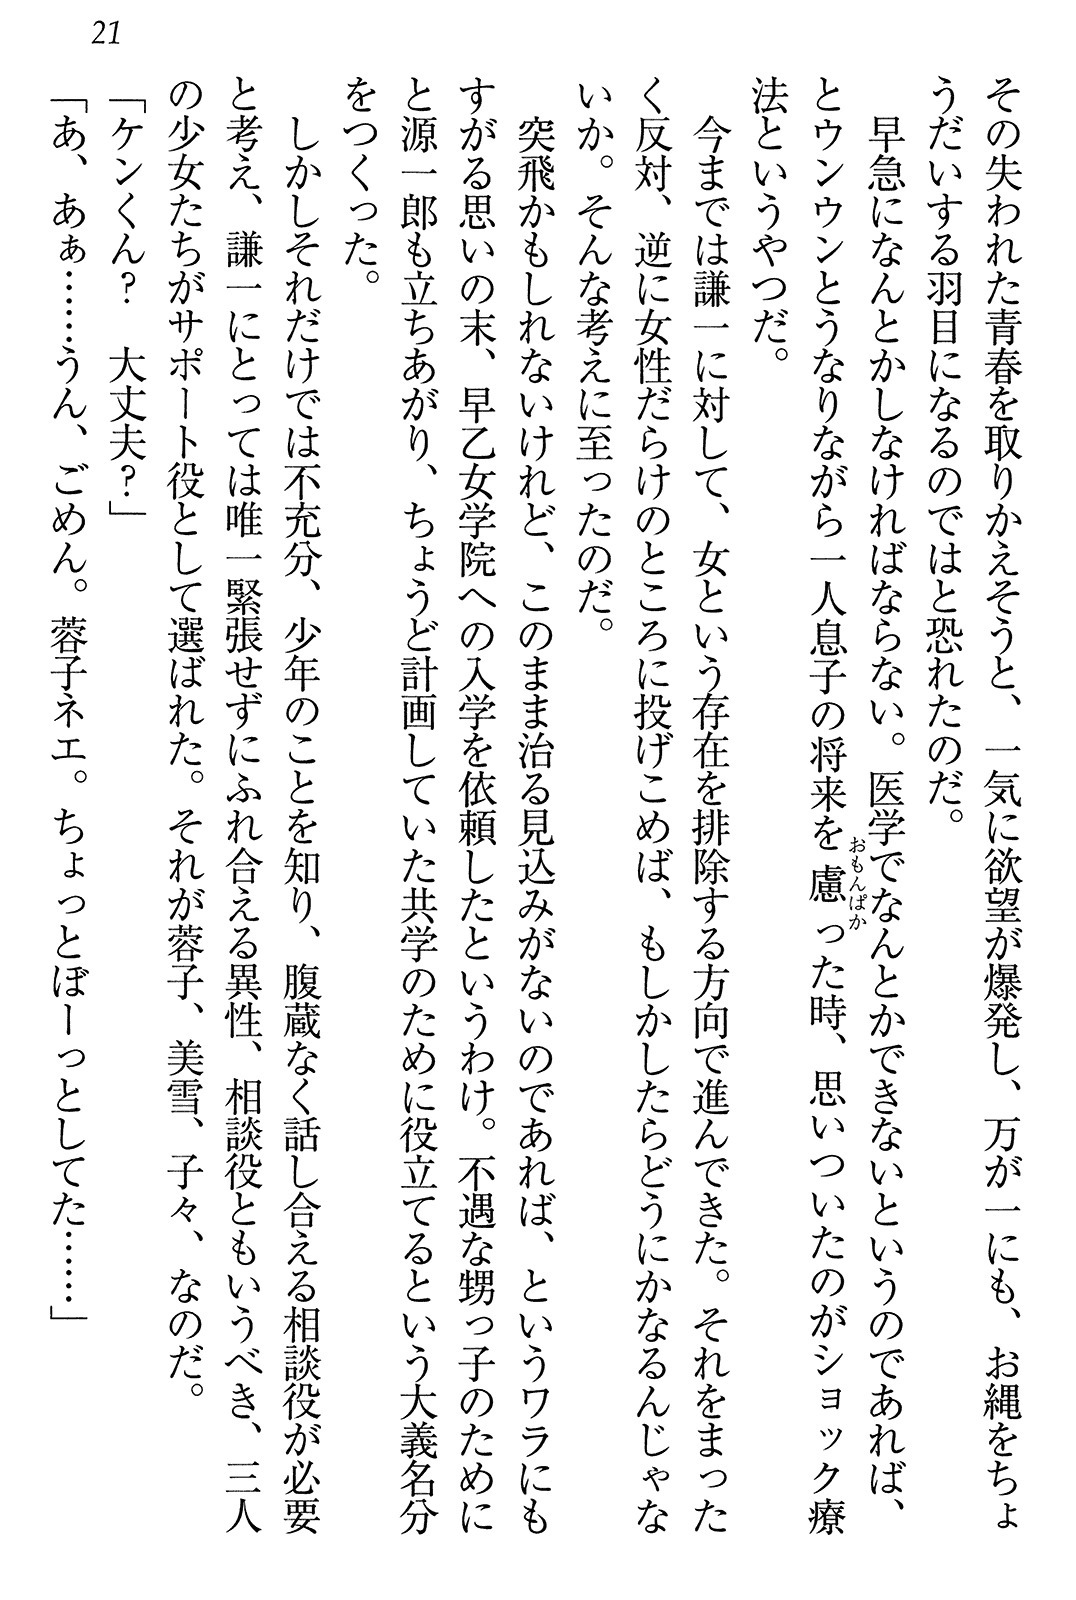 21
その失われた青春を取りかえそうと、一気に欲望が爆発し、万が一にも、お縄をちょ
うだいする羽目になるのではと恐れたのだ。
　早急になんとかしなければならない。医学でなんとかできないというのであれば、
とウンウンとうなりながら一人息子の将来を慮った時、思いついたのがショック療
おもんぱか
法というやつだ。
　今までは謙一に対して、女という存在を排除する方向で進んできた。それをまった
く反対、逆に女性だらけのところに投げこめば、もしかしたらどうにかなるんじゃな
いか。そんな考えに至ったのだ。
　突飛かもしれないけれど、このまま治る見込みがないのであれば、というワラにも
すがる思いの末、早乙女学院への入学を依頼したというわけ。不遇な甥っ子のために
と源一郎も立ちあがり、ちょうど計画していた共学のために役立てるという大義名分
をつくった。
　しかしそれだけでは不充分、少年のことを知り、腹蔵なく話し合える相談役が必要
と考え、謙一にとっては唯一緊張せずにふれ合える異性、相談役ともいうべき、三人
の少女たちがサポート役として選ばれた。それが蓉子、美雪、子々、なのだ。
「ケンくん？　大丈夫？」
「あ、あぁ……うん、ごめん。蓉子ネエ。ちょっとぼーっとしてた……」